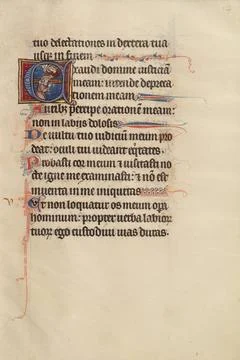 tuo delectationes in dextera tua
usq; in finem
Exaudi domine iusticiā
meam: intende depreca
tionem meam.
Auribus percipe orationē meam:
non in labiis dolosis.
De uultu tuo iudicium meum pro
deat: oculi tui uideant eq̄tates.
Probasti cor meum & uisitasti no
cte: igne me examinasti: & nō est
inuenta in me iniquitas
Vt non loquatur os meum opa
hominum: propter uerba labioꝝ
tuoꝝ ego custodiui uias duras.